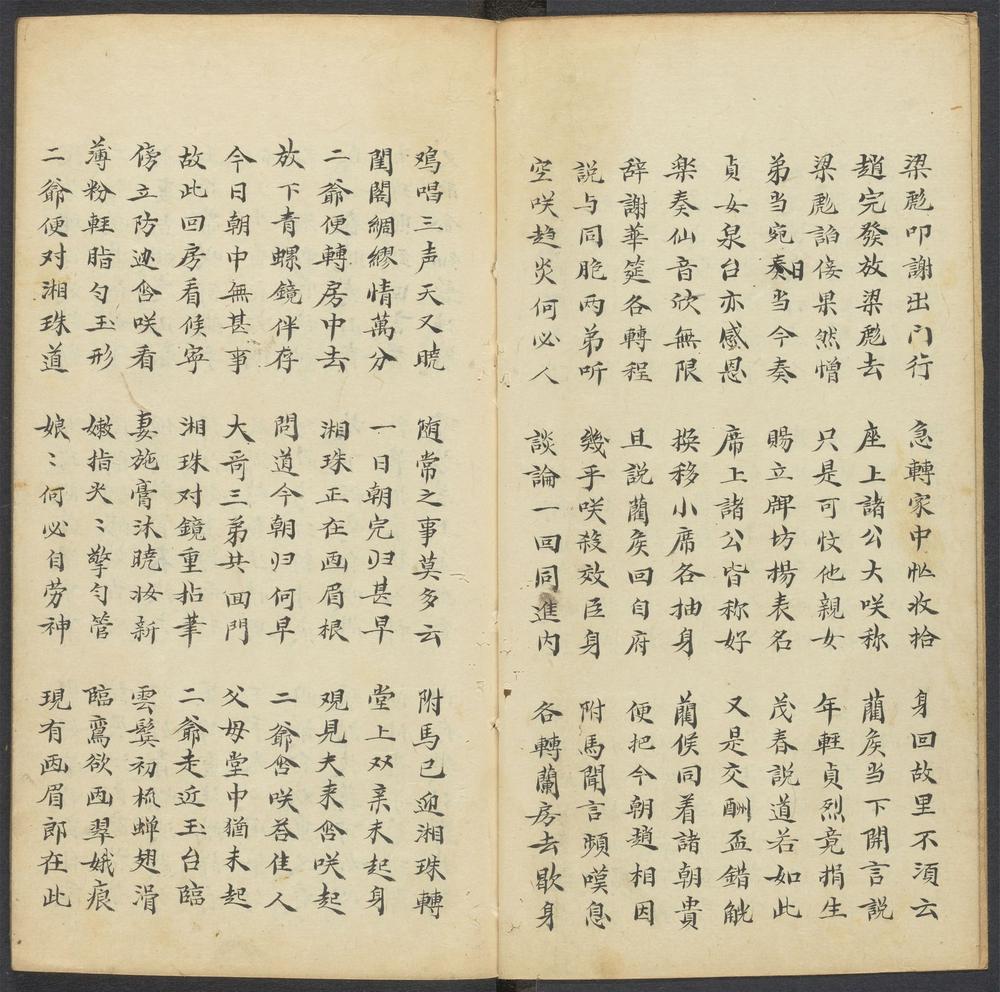 梁彪叩謝出门行 急轉家中忙收拾 身回故里不須云
趙完發放梁彪去 座上諸公大咲称 蘭矦当下開言說
梁彪諂佞果然憎 只是可忟他親女 年輕貞烈竟捐生
弟当宛奏日当今奏 賜立牌坊揚表名 茂春説道若如此
貞女泉台亦感恩 席上諸公皆称好 又是交酬盃錯觥
楽奏仙音欣無限 换移小席各抽身 蘭候同着諸朝貴
辞謝華筵各轉程 且説蘭矦回自府 便把今朝趙相因
説与同胞两弟听 幾乎咲殺效臣身 附馬聞言頻嘆息
空咲趋炎何必人 談論一回同進内 各轉蘭房去歇身
鸡唱三声天又曉 随常之事莫多云 附馬已迎湘珠轉
閨閣綢繆情萬分 一日朝完归甚早 堂上双亲未起身
二爺便轉房中去 湘珠正在画眉根 观見夫来含咲起
放下青螺鏡伴存 問道今朝归何早 二爺含咲荅佳人
今日朝中無甚事 大哥三弟共回門 父母堂中猶未起
故此回房看候寧 湘珠对鏡重拈筆 二爺走近玉台臨
傍立防迯含咲看 妻施膏沐曉妝新 雲鬓初梳蝉翅滑
薄粉輕脂匀玉形 嫩指尖〻擎匀管 臨鸞欲画翠娥痕
二爺便对湘珠道 娘〻何必自劳神 現有画眉郎在此